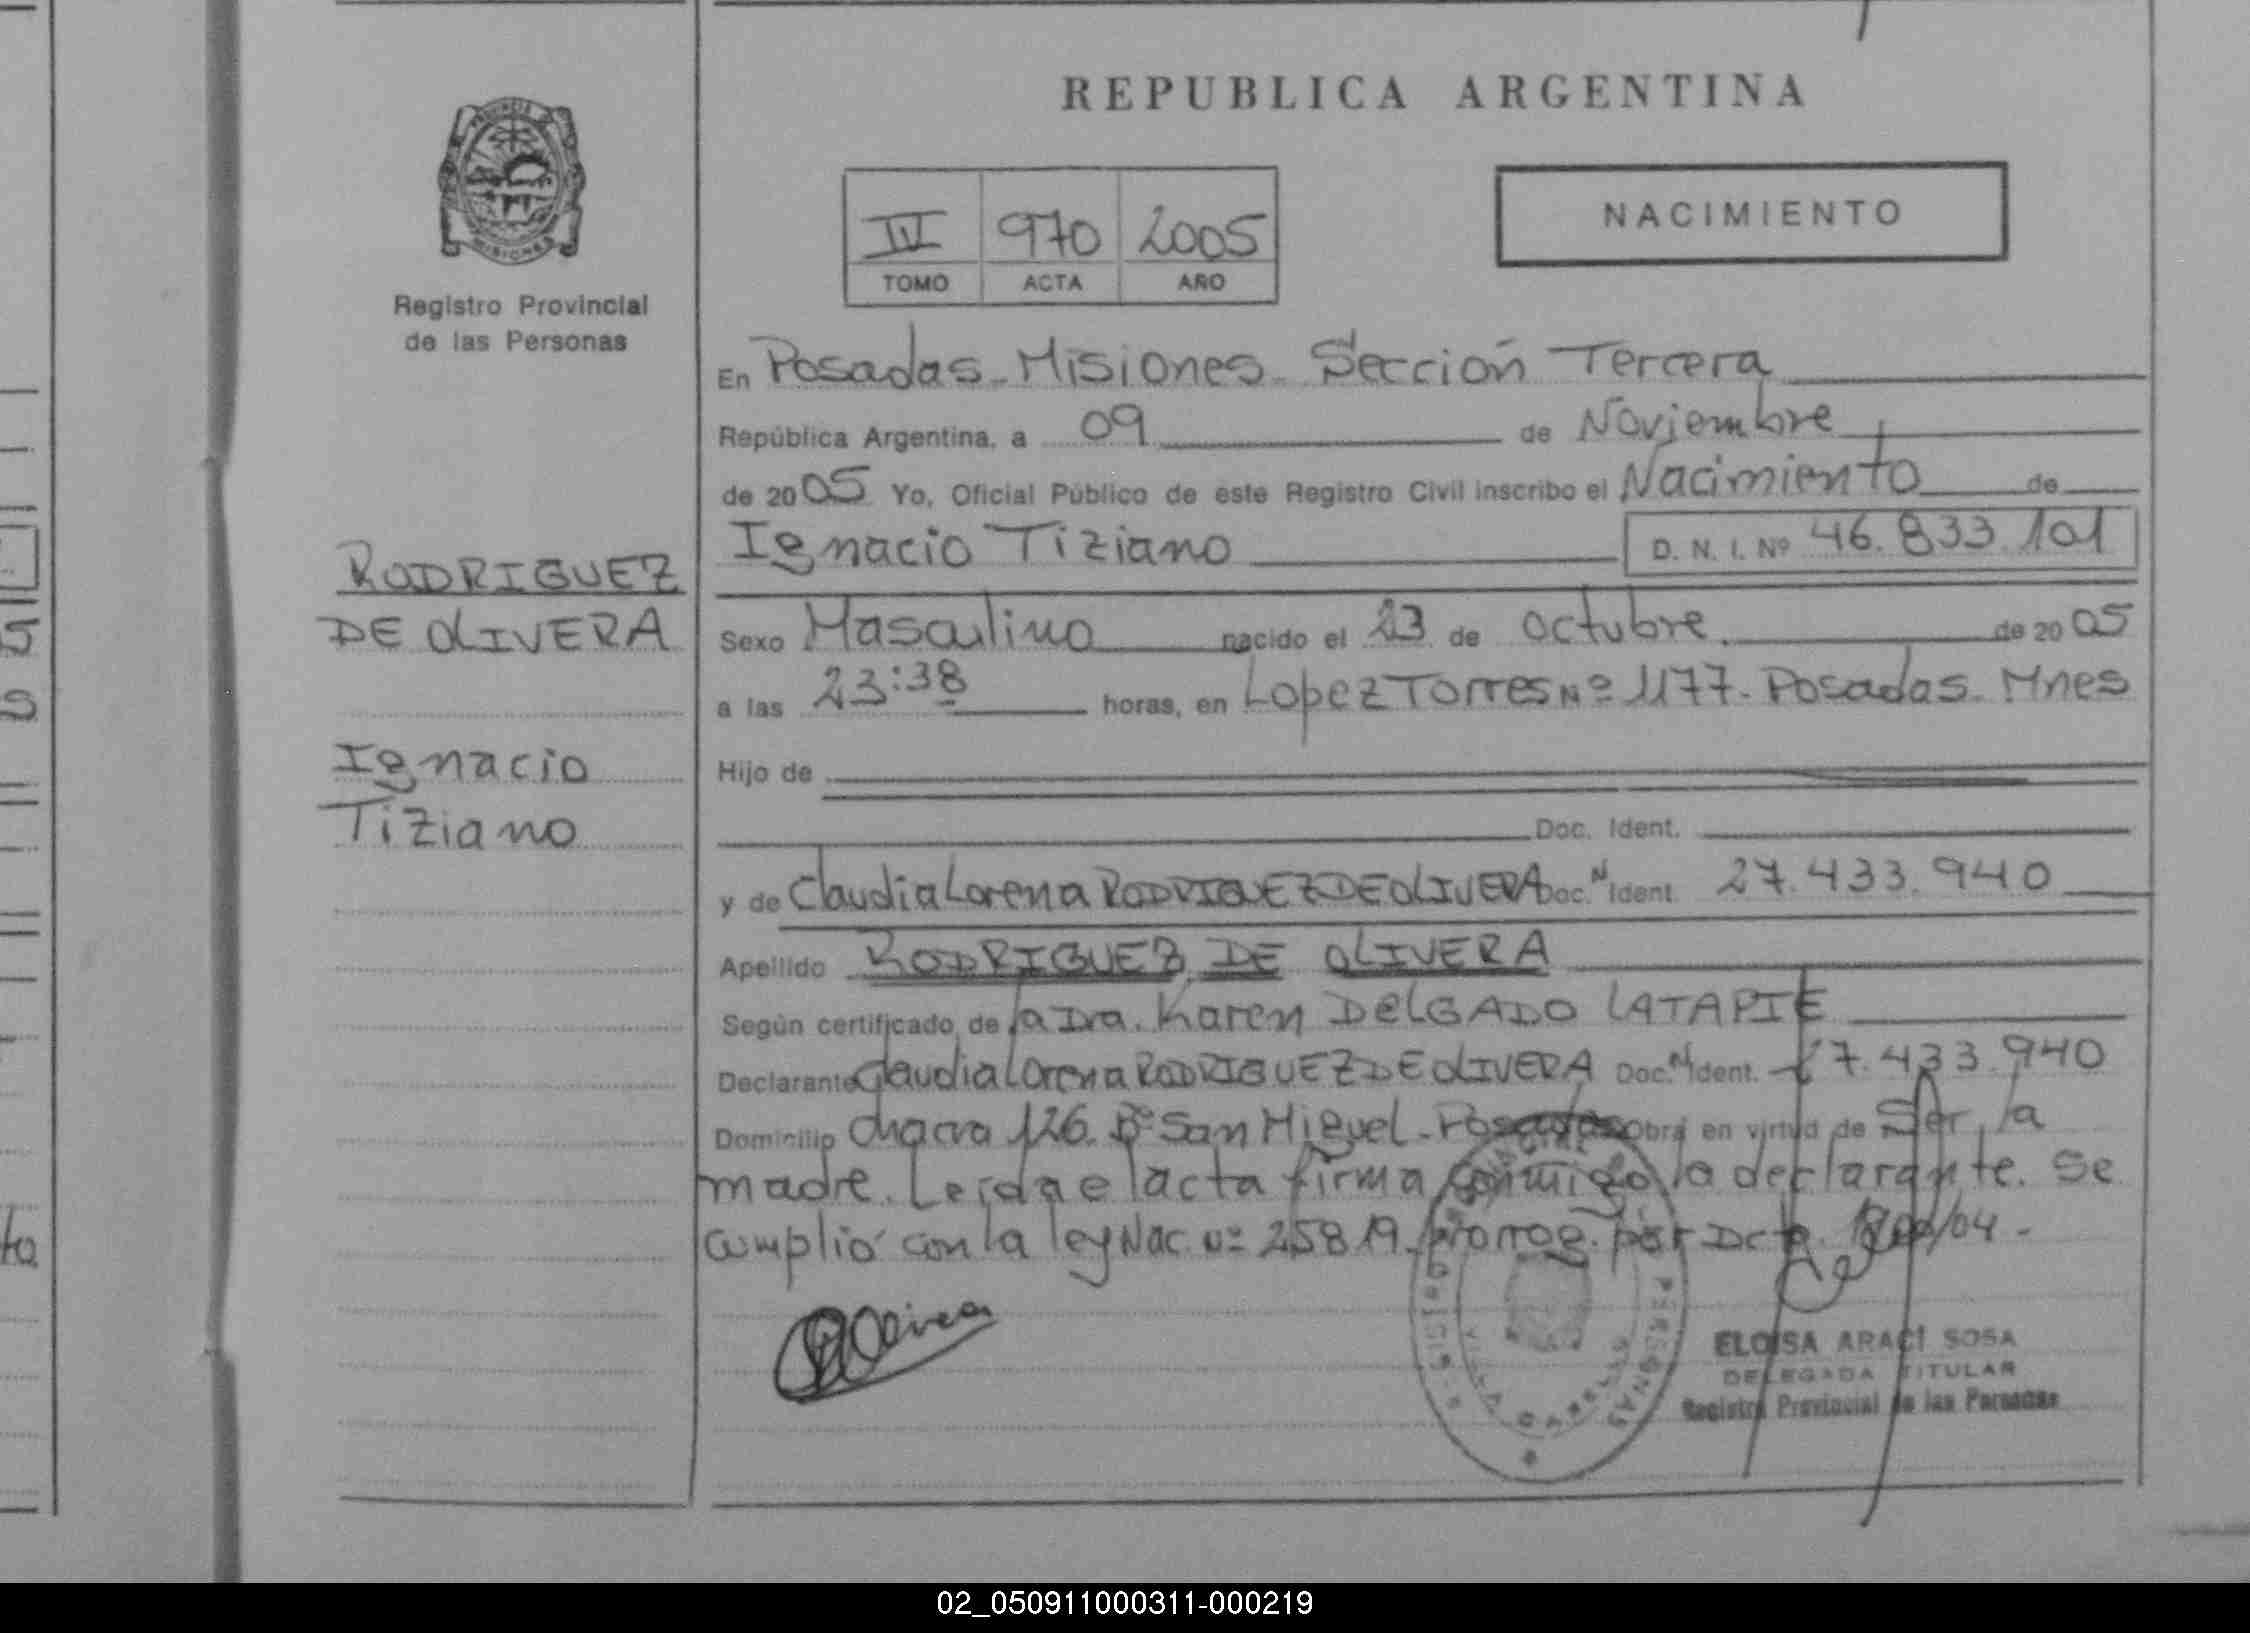 REPUBLICA ARGENTINA
PROVINCIA
MISIONES
Registro Provincial
de las Personas
IV 970 2005
TOMO ACTA AÑO
NACIMIENTO
En Posadas - Misiones - Sección Tercera
República Argentina, a 09 de Noviembre
de 2005 Yo, Oficial Público de este Registro Civil inscribo el Nacimiento de
Ignacio Tiziano D. N. I. Nº 46.833.101
RODRIGUEZ
DE OLIVERA
Ignacio
Tiziano
Sexo Masculino nacido el 23 de octubre. de 2005
a las 23:38 horas, en Lopez Torres Nº 1177 - Posadas - Mnes
Hijo de
Doc. Ident.
y de Claudia Lorena RODRIGUEZ DE OLIVERA Doc. N Ident. 27.433.940
Apellido RODRIGUEZ DE OLIVERA
Según certificado de la Dra. Karen DELGADO LATAPIE
Declarante Claudia Lorena RODRIGUEZ DE OLIVERA Doc. N Ident. 27.433.940
Domicilio Chacra 126. Bº San Miguel - Posadas Obra en virtud de Ser la
madre. Leída el acta firma conmigo la declarante. Se
cumplió con la ley Nac. Nº 25819. prorrog. por Dcto. /04 -
Olivera
PERSONAS
VILLA CABELLO
ELOISA ARACÍ SOSA
DELEGADA TITULAR
Registro Provincial de las Personas
to
02_050911000311-000219